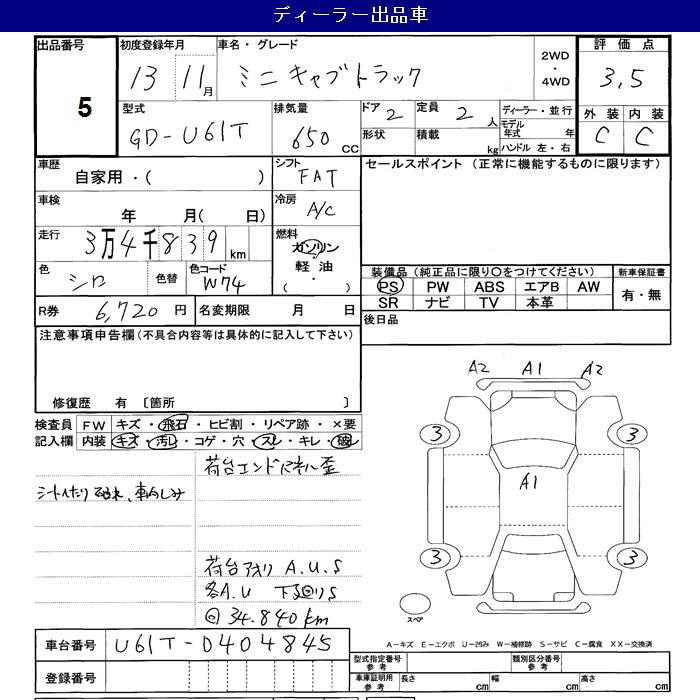 ディーラー出品車
出品番号 初度登録年月 車名・グレード 2WD・4WD 評価点
5 13 11月 ミニキャブトラック 3.5
型式 排気量 ドア 2 定員 2人 ディーラー・並行 外装 内装
GD-U61T 650cc 形状 積載 kg モデル年式 年 C C
ハンドル 左・右
車歴 シフト セールスポイント (正常に機能するものに限ります)
自家用・( ) FAT
車検 冷房
年 月( 日) A/C
走行 3万4千839km 燃料
ガソリン・軽油・( )
色 色替 色コード 装備品(純正品に限り○をつけてください) 新車保証書
シロ W74 PS PW ABS エアB AW 有・無
SR ナビ TV 本革
R券 6,720円 名変期限 月 日 後日品
注意事項申告欄(不具合内容等は具体的に記入して下さい)
修復歴 有 〔箇所 〕
検査員記入欄 FW キズ・飛石・ヒビ割・リペア跡・×要
内装 キズ・汚レ・コゲ・穴・スレ・キレ・破レ
シートへたり 破れ、
荷台エンドパネル歪
荷台アオリ A.U.S
各A.U 下廻りS
34.840km
A2 A1 A2
3 3
A1
3 3
スペア
A-キズ E-エクボ U-凹み W-補修跡 S-サビ C-腐食 XX-交換済
車台番号 U61T-0404845
登録番号
型式指定番号 参考 類別区分番号 参考
車庫証明用 参考 長さ cm 幅 cm 高さ cm